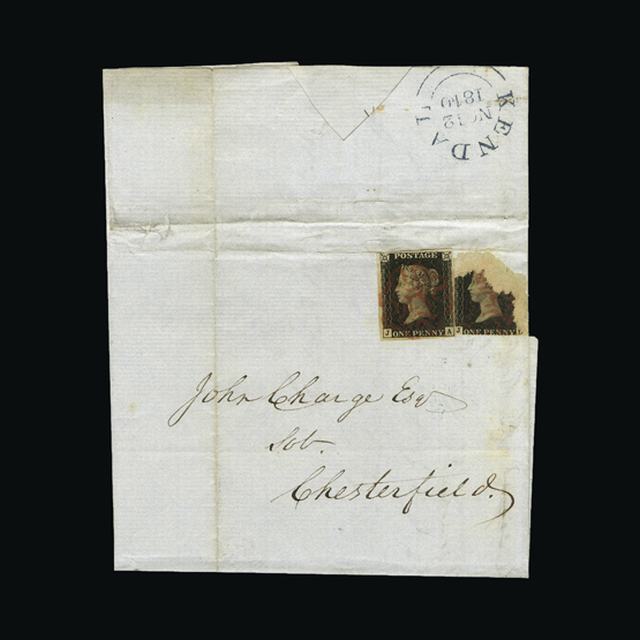 KENDAL
1840
POSTAGE
J ONE PENNY A
J ONE PENNY
John Charge Esqr
Sol.
Chesterfield.